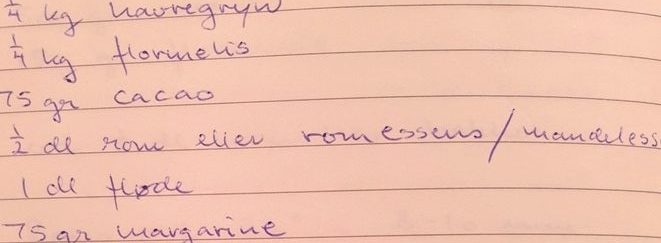 1/4 kg havregryn
1/4 kg flormelis
75 gr cacao
1/2 dl rom eller romessens / mandeless
1 dl fløde
75 gr margarine